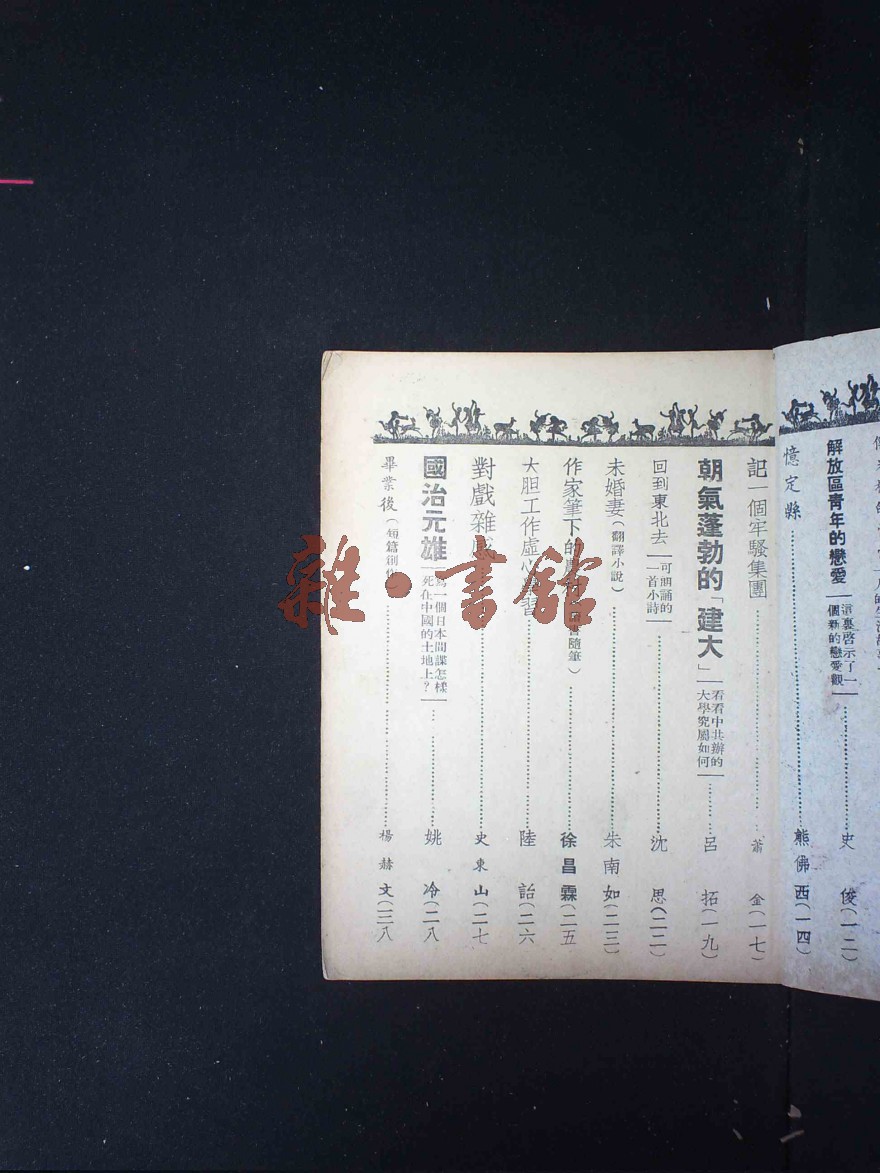 解放區青年的戀愛 這裏啓示了一個新的戀愛觀 史 俊(一二)
憶定縣 熊佛西(一四)
記一個牢騷集團 蕭 金(一七)
朝氣蓬勃的「建大」 看看中共辦的大學究屬如何 呂 拓(一九)
回到東北去 可朗誦的一首小詩 沈 思(二二)
未婚妻(翻譯小說) 朱南如(二三)
作家筆下的 隨筆) 徐昌霖(二五)
大胆工作虛心 習 陸 詒(二六
對戲雜感 史東山(二七
國治元雄 寫一個日本間諜怎樣死在中國的土地上? 姚 冷(二八
畢業後(短篇創作 楊赫文(三八
雜·書館